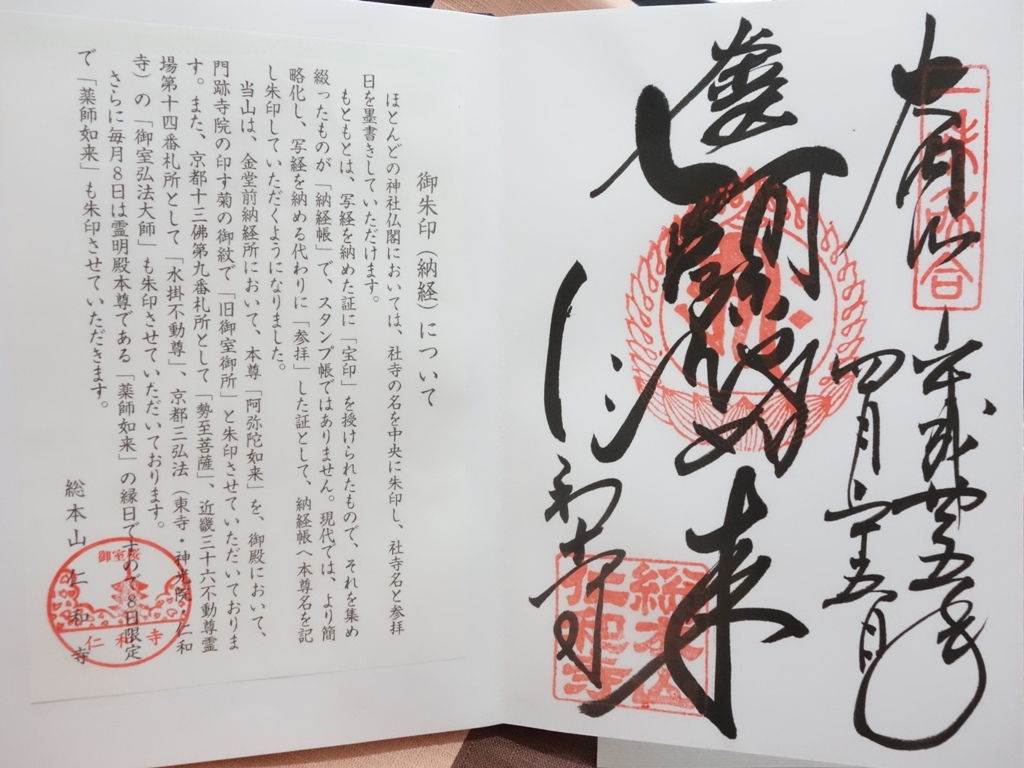 大内山
平成廿五年
四月二十五日
阿弥陀如来
仁和寺
総本山
仁和寺
御朱印（納経）について
ほとんどの神社仏閣においては、社寺の名を中央に朱印し、社寺名と参拝
日を墨書きしていただけます。
もともとは、写経を納めた証に「宝印」を授けられたもので、それを集め
綴ったものが「納経帳」で、スタンプ帳ではありません。現代では、より簡
略化し、写経を納める代わりに「参拝」した証として、納経帳へ本尊名を記
し朱印していただくようになりました。
当山は、金堂前納経所において、本尊「阿弥陀如来」を、御殿において、
門跡寺院の印す菊の御紋で「旧御室御所」と朱印させていただいておりま
す。また、京都十三佛第九番札所として「勢至菩薩」、近畿三十六不動尊霊
場第十四番札所として「水掛不動尊」、京都三弘法（東寺・神光院・仁和
寺）の「御室弘法大師」も朱印させていただいております。
さらに毎月８日は霊明殿本尊である「薬師如来」の縁日ですので８日限定
で「薬師如来」も朱印させていただきます。
総本山 仁和寺
御室桜
仁和寺